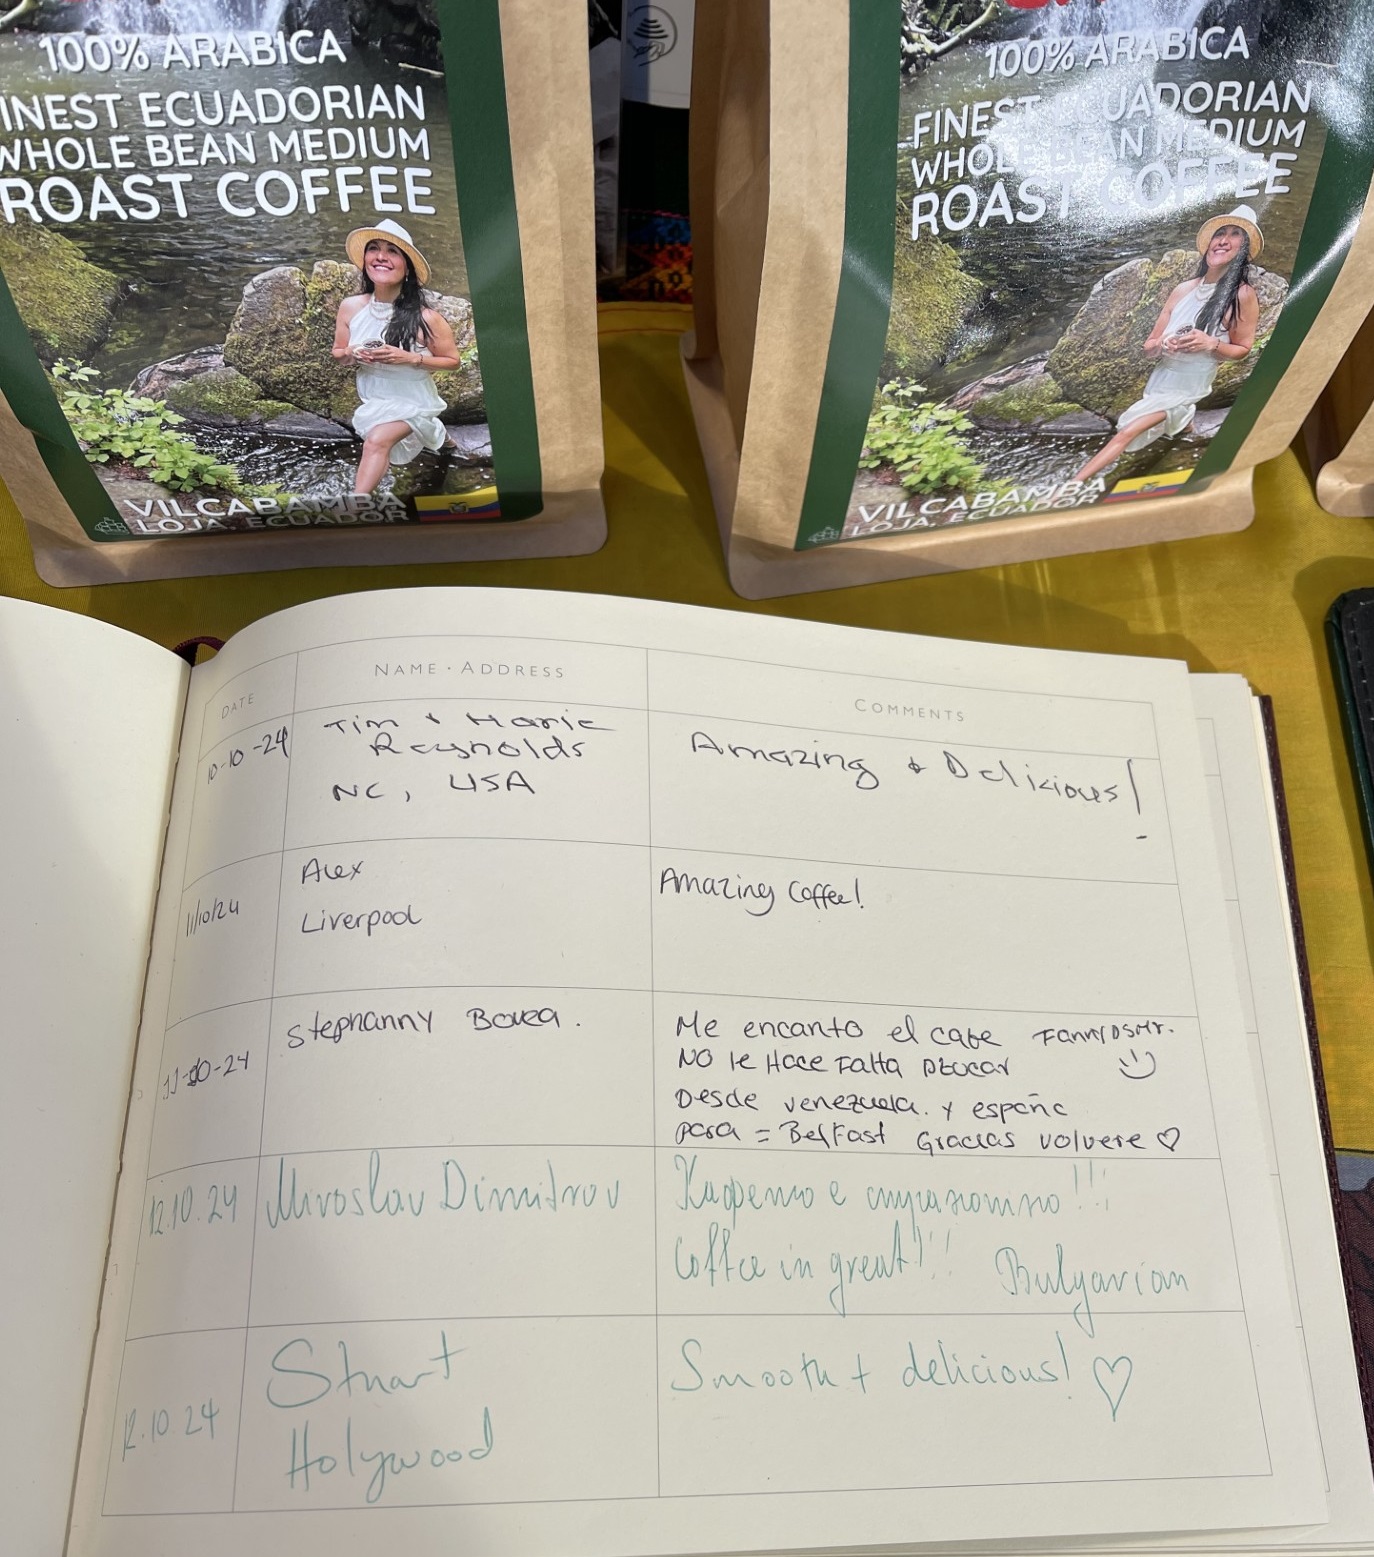 100% ARABICA
INEST ECUADORIAN
WHOLE BEAN MEDIUM
ROAST COFFEE
VILCABAMBA
LOJA, ECUADOR
100% ARABICA
FINEST ECUADORIAN
WHOLE BEAN MEDIUM
ROAST COFFEE
VILCABAMBA
LOJA, ECUADOR
DATE NAME · ADDRESS COMMENTS
10-10-24 Tim + Marie
Reynolds
NC, USA
Amazing + Delicious!
11/10/24 Alex
Liverpool
Amazing Coffee!
11-10-24 Stephanny
Me encanto el cafe
NO le Hace Falta Azucar
Desde venezuela. y españa
para = Belfast Gracias volvere ♡
12.10.24 Miroslav Dimitrov
Кафето е страхотно!!!
Coffee in great!!! Bulgarian
12.10.24 Stuart
Holywood
Smooth + delicious! ♡